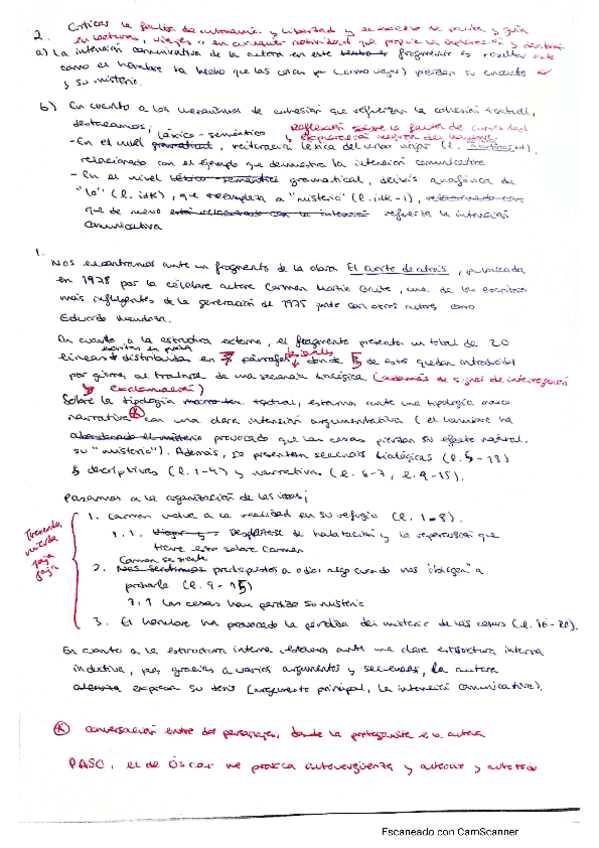 2. Criticar la falta de autonomía y libertad y de pauta y guía
en lecturas, viajes o en cualquier actividad que propicie la exploración y
a) La intención comunicativa de la autora en este fragmento es resaltar
como el hombre ha hecho que las cosas (como viajar) pierdan su encanto
y su misterio.
b) En cuanto a los mecanismos de cohesión que refuerzan la cohesión textual,
destacamos; léxico-semántico Reflexión sobre la falta de curiosidad
-En el nivel gramatical, reiteración léxica del verbo viajar (l.
relacionado con el ejemplo que demuestra la intención comunicativa
-En el nivel léxico-semántico gramatical, deixis anafórica de
"lo" (l. ), que reemplaza a "misterio" (l. ), relacionado con
que de nuevo está relacionado con la intención refuerza la intención
comunicativa
1.
Nos encontramos ante un fragmento de la obra El cuarto de atrás, publicada
en 1978 por la célebre autora Carmen Martín Gaite, una de las escritoras
más influyentes de la generación de 1975 junto con otros autores como
Eduardo Mendoza.
En cuanto a la estructura externa, el fragmento presenta un total de 20
líneas escritas en prosa distribuidas en 7 párrafos, donde 5 de estos quedan introducidos
por guiones al tratarse de una secuencia dialógica (además de signos de interrogación
y exclamación)
Sobre la tipología textual, estamos ante una tipología marco
narrativa con una clara intención argumentativa (el hombre ha
abandonado el misterio provocado que las cosas pierdan su efecto natural.
su "misterio"). Además, se presentan secuencias dialógicas (l. 5-13)
descriptivas (l. 1-4) y narrativas (l. 6-7, l. 9-15).
Pasamos a la organización de las ideas;
Tremenda
mierda
jaja
jaja
1. Carmen vuelve a la realidad en su refugio (l. 1-8).
1.1. Desplazarse de habitación y la repercusión que
tiene esto sobre Carmen
Carmen se siente
2. Nos sentimos predispuestos a odiar algo cuando nos "obligan" a
probarlo (l. 9-15)
2.1 Las cosas han perdido su misterio
3. El hombre ha provocado la pérdida del misterio de las cosas (l. 16-20).
En cuanto a la estructura interna estamos ante una clara estructura interna
inductiva, pues gracias a varios argumentos y secuencias, la autora
expresa su tesis (argumento principal, la intención comunicativa).
conversación entre dos personajes, donde la protagonista es la autora
PASO, el de Óscar me provoca autovergüenza y
Escaneado con CamScanner